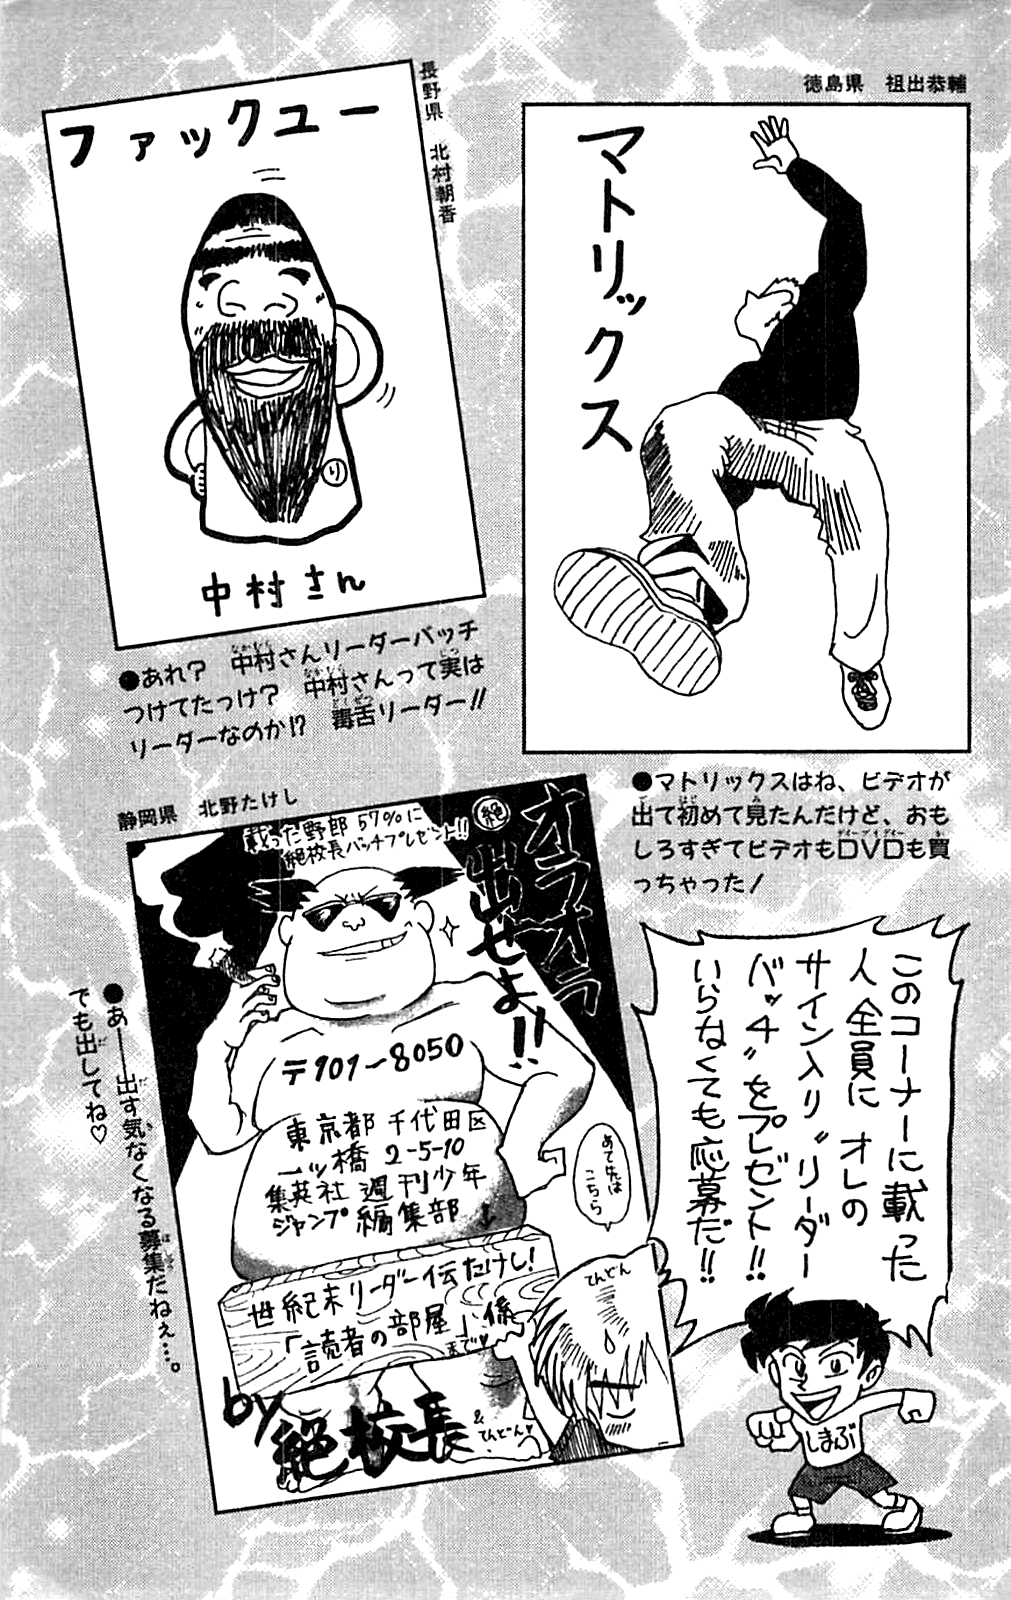 徳島県　祖出恭輔
マトリックス
●マトリックスはね、ビデオが
出て初めて見たんだけど、おも
しろすぎてビデオもDVDも買
っちゃった！
長野県　北村朝香
ファックユー
り
中村さん
●あれ？　中村さんリーダーバッチ
つけてたっけ？　中村さんって実は
リーダーなのか!?　毒舌リーダー!!
静岡県　北野たけし
載った野郎57%に
絶校長バッチプレゼント!!
絶
オラオラ
出せよ!!
〒101-8050
東京都 千代田区
一ッ橋 2-5-10
集英社 週刊少年
ジャンプ 編集部
あて先は
こちら
世紀末リーダー伝たけし!
「読者の部屋」係
まで♥
てんどん
by
絶校長
&
てんどん♥
●あ――出す気なくなる募集だねぇ…。
でも出してね♡
このコーナーに載った
人全員に オレの
サイン入り〝リーダー
バッチ〟をプレゼント!!
いらなくても応募だ!!
しまぶ